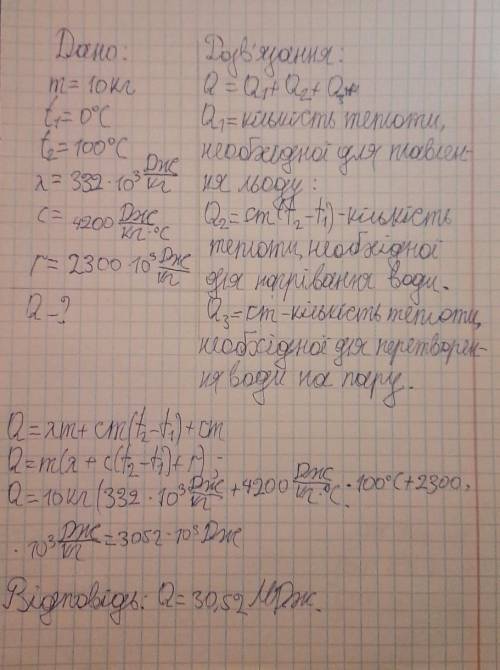 Дано:
m = 10кг
t₁ = 0°C
t₂ = 100°C
λ = 332 · 10³ Дж/кг
c = 4200 Дж/кг·°C
r = 2300 · 10³ Дж/кг
Q - ?
Розв'язання:
Q = Q₁ + Q₂ + Q₃
Q₁ = кількість теплоти,
необхідної для плавлен-
ня льоду:
Q₂ = cm(t₂ - t₁) - кількість
теплоти, необхідної
для нагрівання води.
Q₃ = cm - кількість теплоти,
необхідної для перетворен-
ня води на пару.
Q = λm + cm(t₂ - t₁) + cm
Q = m(λ + c(t₂ - t₁) + r);
Q = 10кг (332 · 10³ Дж/кг + 4200 Дж/кг·°C · 100°C + 2300 ·
· 10³ Дж/кг = 3052 · 10³ Дж
Відповідь: Q = 30,52 МДж.